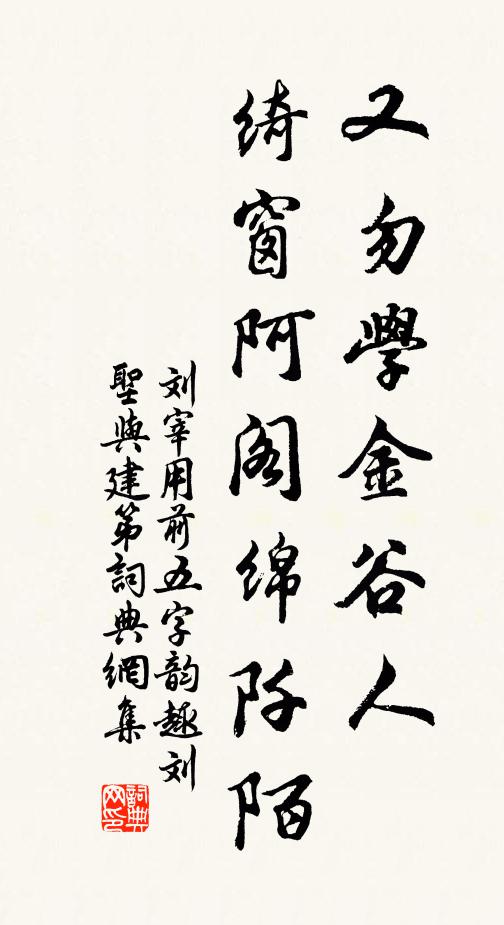 又勿學金谷人
绮窗阿阁绵阡陌
刘宰用前五字韵趣刘
聖與建第詞典網集
詞典网印